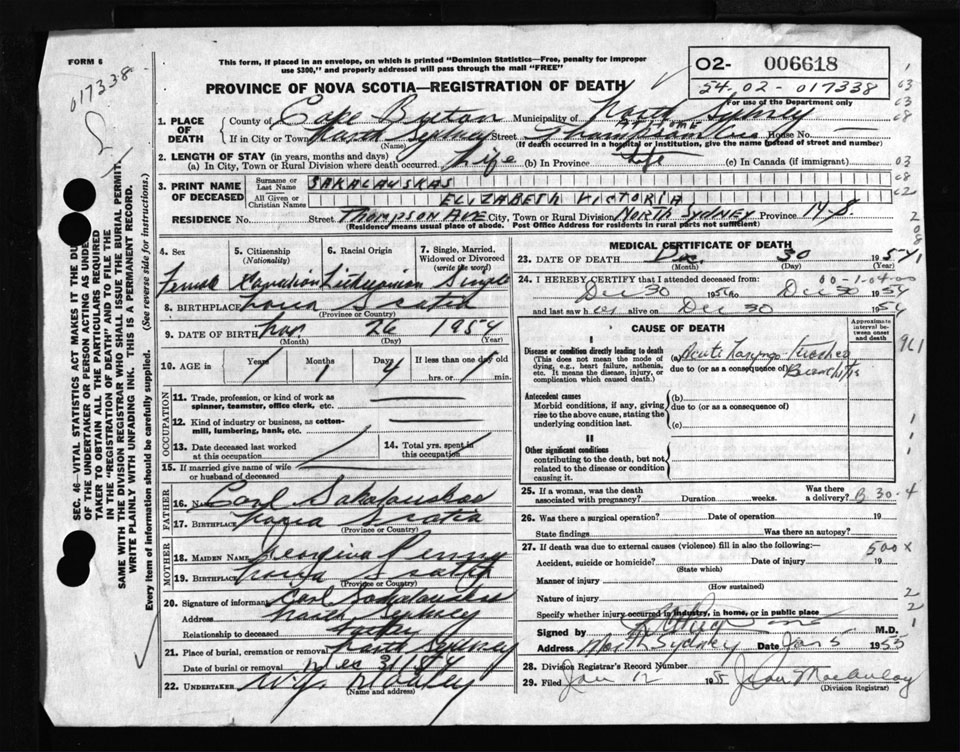 FORM 6
This form, if placed in an envelope, on which is printed "Dominion Statistics—Free, penalty for improper
use $300," and properly addressed will pass through the mail "FREE"
PROVINCE OF NOVA SCOTIA—REGISTRATION OF DEATH
02- 006618
54.02-017338
For use of the Department only
017338
1. PLACE OF DEATH
County of Cape Breton Municipality of North Sydney
If in City or Town North Sydney Street Thompson Ave House No.
(Name) (If death occurred in a hospital or institution, give the name instead of street and number)
2. LENGTH OF STAY (in years, months and days)
(a) In City, Town or Rural Division where death occurred. Life (b) In Province Life (c) In Canada (if immigrant)
3. PRINT NAME OF DECEASED
Surname or Last Name SAKALAUSKAS
All Given or Christian Names ELIZABETH VICTORIA
RESIDENCE No. Street THOMPSON AVE City, Town or Rural Division NORTH SYDNEY Province N.S.
(Residence means usual place of abode. Post Office Address for residents in rural parts not sufficient)
4. Sex Female
5. Citizenship (Nationality) Canadian
6. Racial Origin Lithuanian
7. Single, Married, Widowed or Divorced (write the word) Single
8. BIRTHPLACE Nova Scotia
(Province or Country)
9. DATE OF BIRTH Nov. 26 1954
(Month) (Day) (Year)
10. AGE in Years Months 1 Days 4 If less than one day old
hrs. or min.
OCCUPATION
11. Trade, profession, or kind of work as
spinner, teamster, office clerk, etc.
12. Kind of industry or business, as cotton-
mill, lumbering, bank, etc.
13. Date deceased last worked at this occupation
14. Total yrs. spent in this occupation
15. If married give name of wife or husband of deceased
FATHER
16. Name Carl Sakalauskas
17. Birthplace Nova Scotia
(Province or Country)
MOTHER
18. MAIDEN NAME Penny
19. Birthplace Nova Scotia
(Province or Country)
20. Signature of informant Carl Sakalauskas
Address North Sydney
Relationship to deceased father
21. Place of burial, cremation or removal North Sydney
Date of burial or removal Dec 31/54
22. UNDERTAKER
(Name and address)
MEDICAL CERTIFICATE OF DEATH
23. DATE OF DEATH Dec. 30 1954
(Month) (Day) (Year)
24. I HEREBY CERTIFY that I attended deceased from:
Dec 30 1954 to Dec 30 1954
and last saw her alive on Dec 30 1954
CAUSE OF DEATH
Approximate interval between onset and death
I
Disease or condition directly leading to death
(This does not mean the mode of dying, e.g., heart failure, asthenia, etc. It means the disease, injury, or complication which caused death.)
(a) Acute Laryngo-Tracheo
due to (or as a consequence of) Bronchitis
Antecedent causes
Morbid conditions, if any, giving rise to the above cause, stating the underlying condition last.
(b)
due to (or as a consequence of)
(c)
II
Other significant conditions
contributing to the death, but not related to the disease or condition causing it.
25. If a woman, was the death associated with pregnancy? Duration weeks. Was there a delivery?
B 30-4
26. Was there a surgical operation? Date of operation 19
State findings Was there an autopsy?
27. If death was due to external causes (violence) fill in also the following:—
500 x
Accident, suicide or homicide? Date of injury 19
(State which)
Manner of injury
(How sustained)
Nature of injury
Specify whether injury occurred in industry, in home, or in public place
Signed by M.D.
Address North Sydney Date Jan 5 1955
28. Division Registrar's Record Number
29. Filed Jan 12 195 Jean MacAulay
(Division Registrar)
SEC. 46—VITAL STATISTICS ACT MAKES IT THE DU
OF THE UNDERTAKER OR PERSON ACTING AS UNDER
TAKER TO OBTAIN ALL THE PARTICULARS REQUIRED
IN THE "REGISTRATION OF DEATH" AND TO FILE THE
SAME WITH THE DIVISION REGISTRAR WHO SHALL ISSUE THE BURIAL PERMIT.
WRITE PLAINLY WITH UNFADING INK. THIS IS A PERMANENT RECORD.
Every item of information should be carefully supplied. (See reverse side for instructions.)